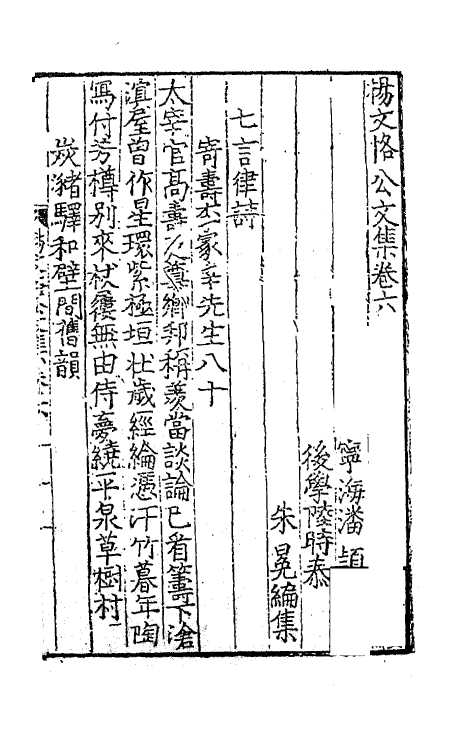 楊文恪公文集卷六
寧海潘 頡
後學陸時泰
朱 冕編集
七言律詩
寄壽太冢宰先生八十
太宰官高壽又尊鄉邦稱羨當談論已看籌下滄
溟屋曾作星環紫極垣壮歲經綸憑汗竹暮年陶
寫付芳樽别來杖屨無由侍夢繞平泉草樹村
炭渚驛和壁間舊韻